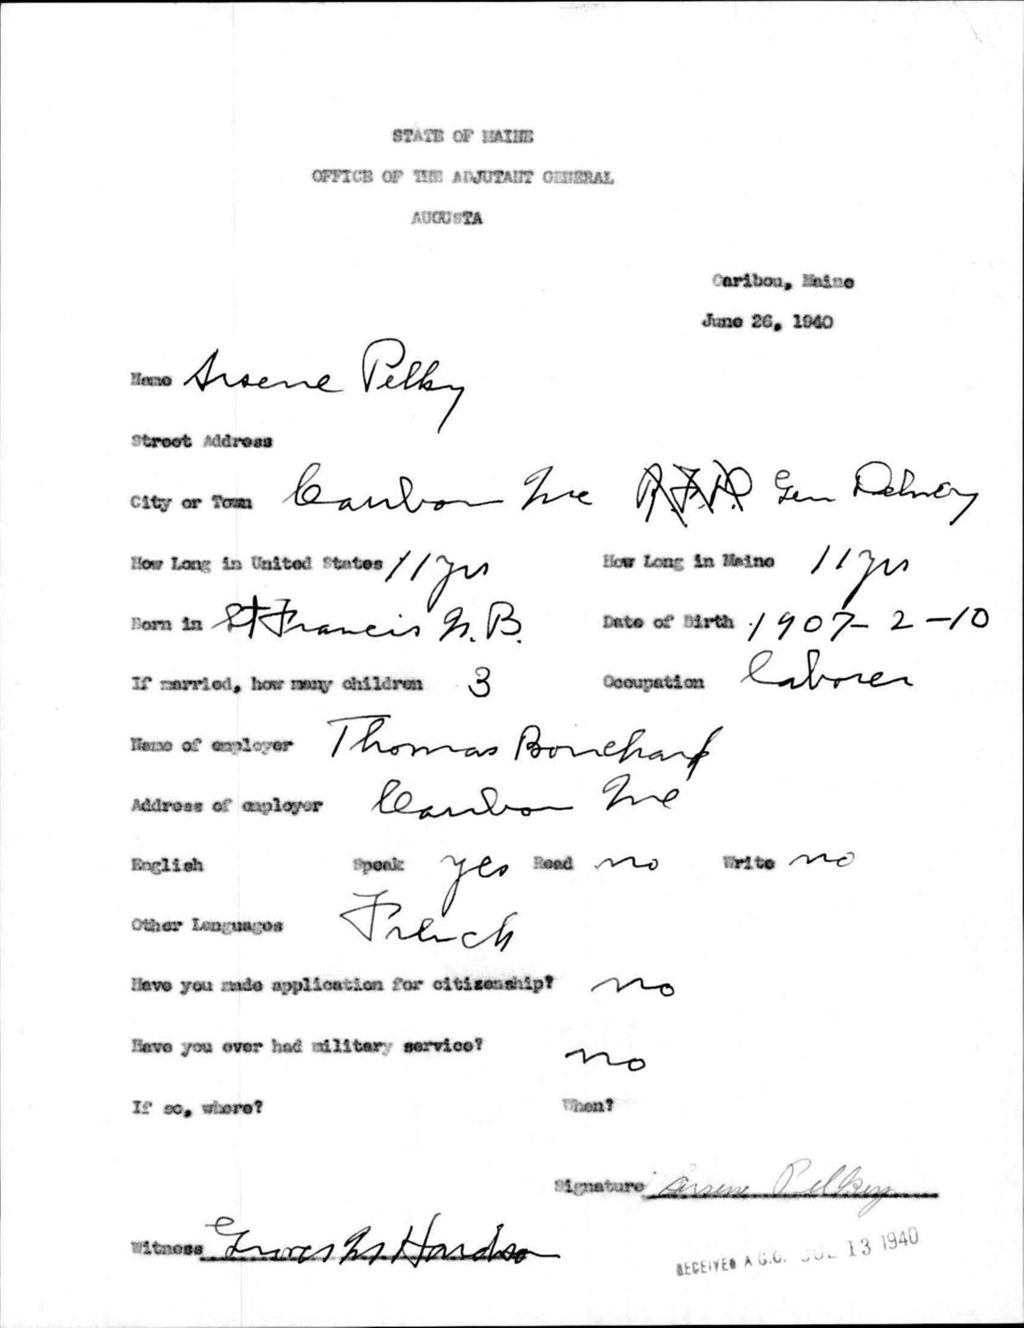 STATE OF MAINE
OFFICE OF THE ADJUTANT GENERAL
AUGUSTA
Caribou, Maine
June 26, 1940
Name Arsene Pelky
Street Address
City or Town Caribou Me R.F.D. Gen Delivery
How Long in United States 11 yrs How Long in Maine 11 yrs
Born in St Francis N.B. Date of Birth 1907-2-10
If married, how many children 3 Occupation Laborer
Name of employer Thomas Bouchard
Address of employer Caribou Me
English Speak yes Read no Write no
Other Languages French
Have you made application for citizenship? no
Have you ever had military service? no
If so, where? When?
Signature Arsene Pelkey
Witness
RECEIVED A.G.O. JUL 13 1940